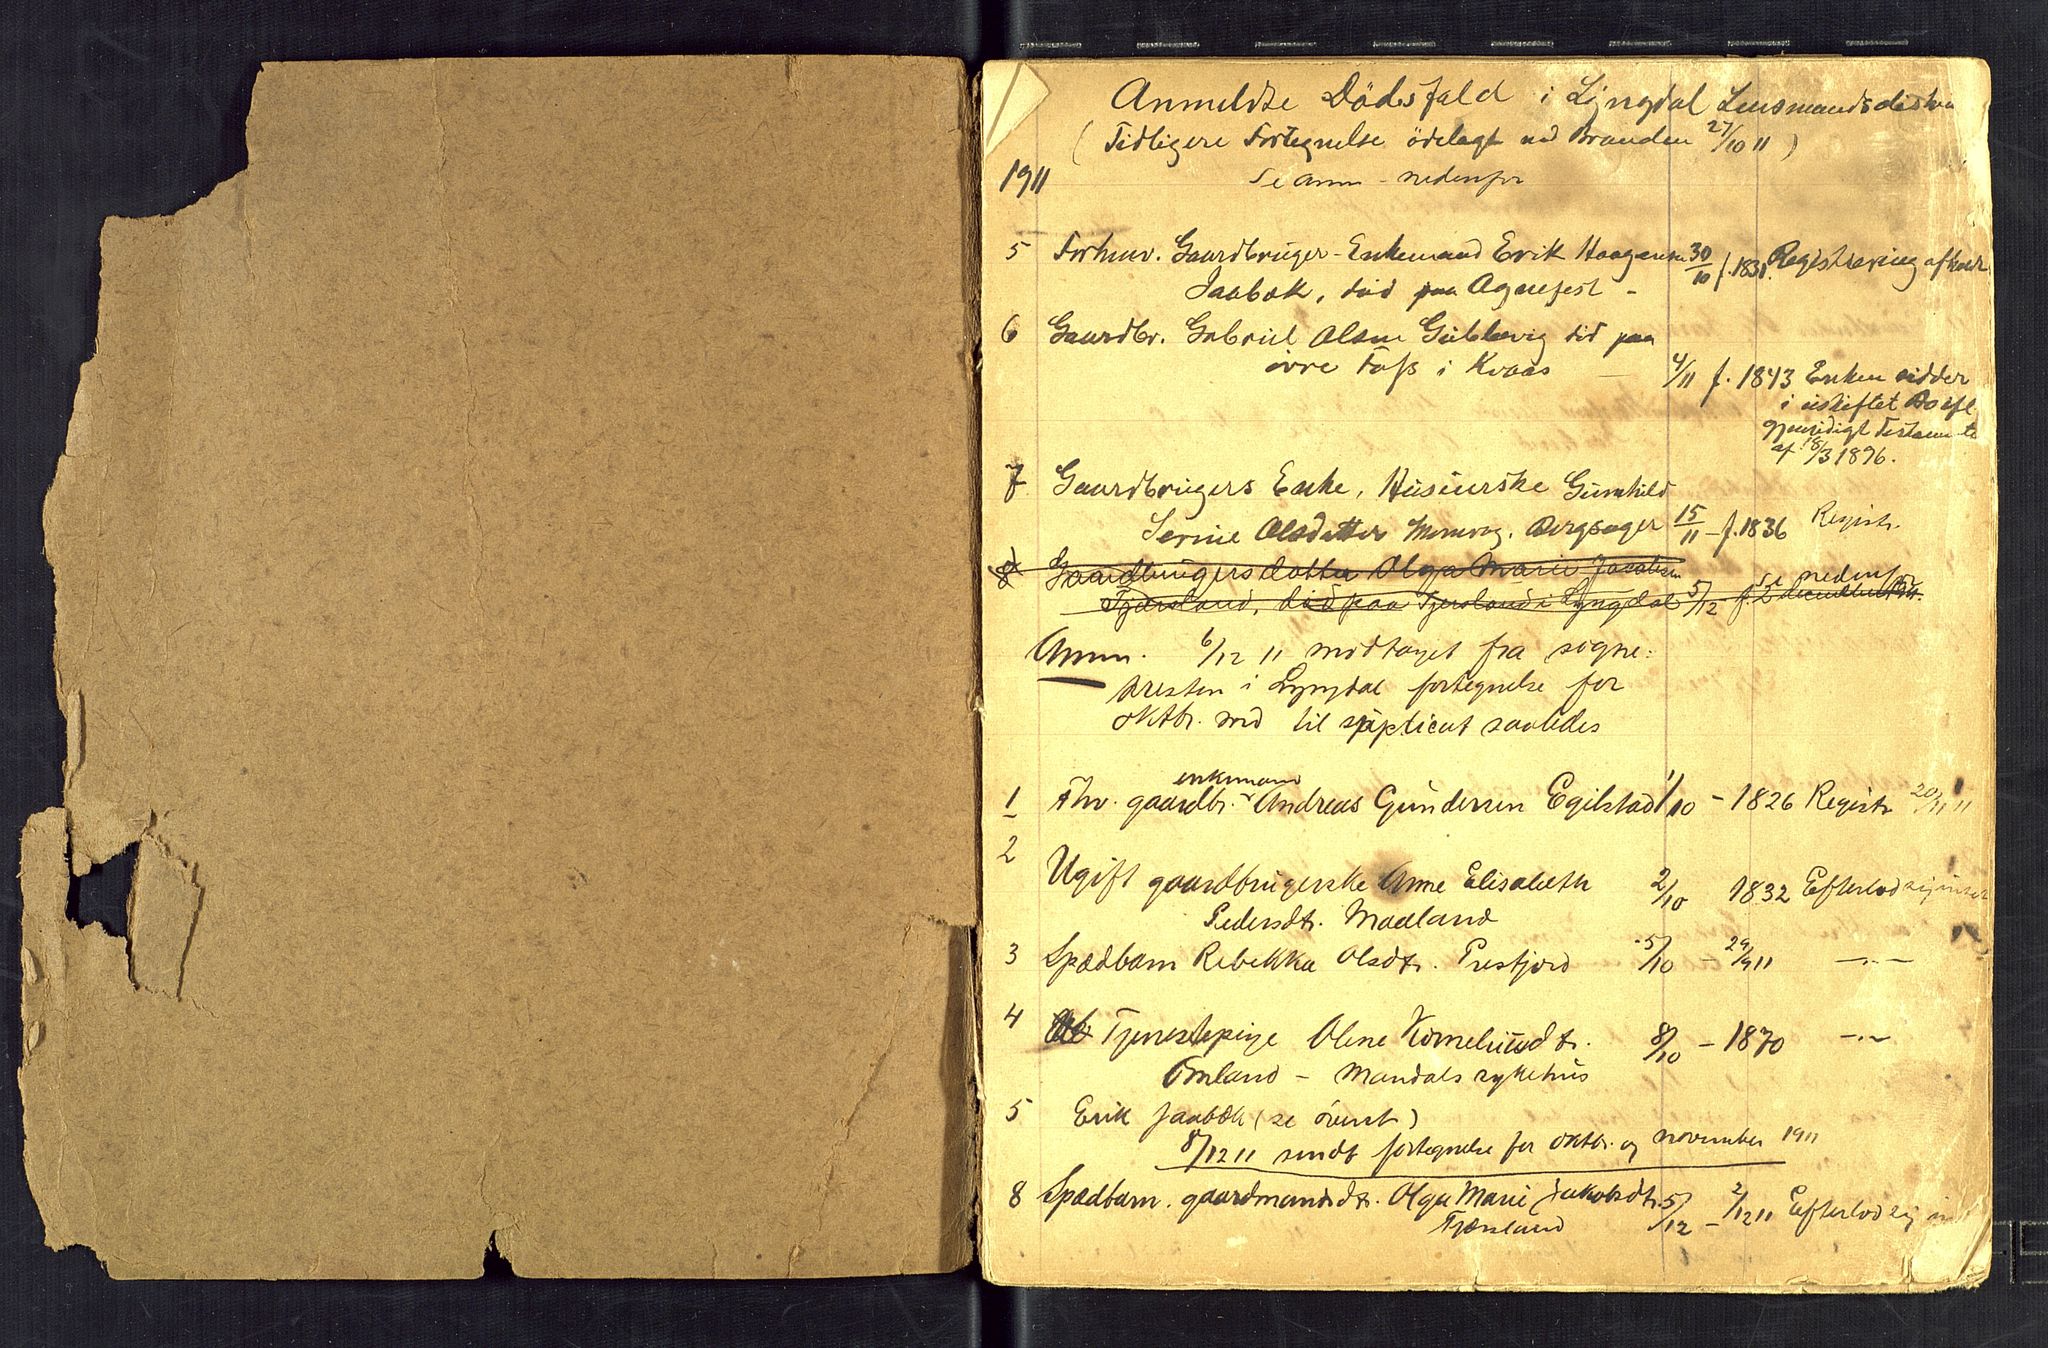 Anmeldte Dödsfald i Lyngdal Lensmandsdistri
(Tidligere Fortegnelse ödelagt ved Branden 27/10 11)
1911 Se anm - nedenfor
5 Forhenv. Gaardbruger - Enkemand Erik Haagensen 30/10 f. 1831. Registrering afholdt
Jaabæk, död paa Agnefest -
6 Gaardbr. Gabriel Olsen Gullevig död paa
övre Foss i Kvaas - 4/11 f. 1843 Enken sidder
i uskiftet Bo ifl.
gjensidigt Testamente
af 18/3 1896.
7 Gaardbrugers Enke, Husmorske Gunhild
Serine Olsdatter Bergsager 15/11 - f. 1836 Registr.
8 Gaardbrugersdatter Olga Marie Jacobsen se nedenf.
Tjærsland, död paa Tjersland i Lyngdal 5/12 - f. 2 december
Anm. 6/12 11 modtaget fra sogne:
presten i Lyngdal fortegnelse for
oktbr. md til supplicat saaledes
enkemand
1 Fhv. gaardbr. Andreas Gundersen Egilstad 1/10 - 1826 Registr 20/11 11
2 Ugift gaardbrugerske Anne Elisabeth 2/10 1832 Efterlod sig intet
Pedersdt. Maaland
3 Spædbarn Rebekka Olsdt. Presfjord 5/10 - 29/9 11 -"-
4 Tjenestepige Olene Korneliusdt. 8/10 - 1870 -"-
Omland - Mandals sykehus
5 Erik Jaabæk (se övenst)
8/12 11 sendt fortegnelse for oktbr. og november 1911
8 Spædbarn. gaardmandsdt. Olga Marie Jakobsdt. 5/12 - 2/12 11 Efterlod sig in
Tjærsland